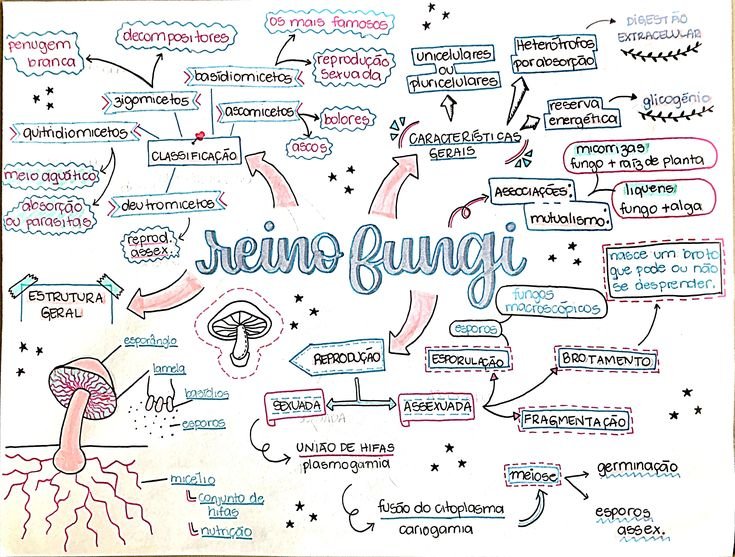 penugem
branca
decompositores
os mais famosos
basidiomicetos
reprodução
sexuada
zigomicetos
ascomicetos
bolores
ascos
quitridiomicetos
CLASSIFICAÇÃO
meio aquático
absorção
ou parasitas
deutromicetos
reprod.
assex.
unicelulares
ou
pluricelulares
Heterótrofos
por absorção
DIGESTÃO
EXTRACELULAR
reserva
energética
glicogênio
CARACTERÍSTICAS
GERAIS
ASSOCIAÇÕES:
mutualismo:
micorrizas
fungo + raiz de planta
liquens
fungo + alga
reino fungi
ESTRUTURA
GERAL
esporângio
lamela
basídios
esporos
micélio
conjunto de
hifas
nutrição
REPRODUÇÃO
SEXUADA
ASSEXUADA
UNIÃO DE HIFAS
plasmogamia
fusão do citoplasma
cariogamia
meiose
germinação
esporos
assex.
fungos
macroscópicos
esporos
ESPORULAÇÃO
BROTAMENTO
FRAGMENTAÇÃO
nasce um broto
que pode ou não
se desprender.